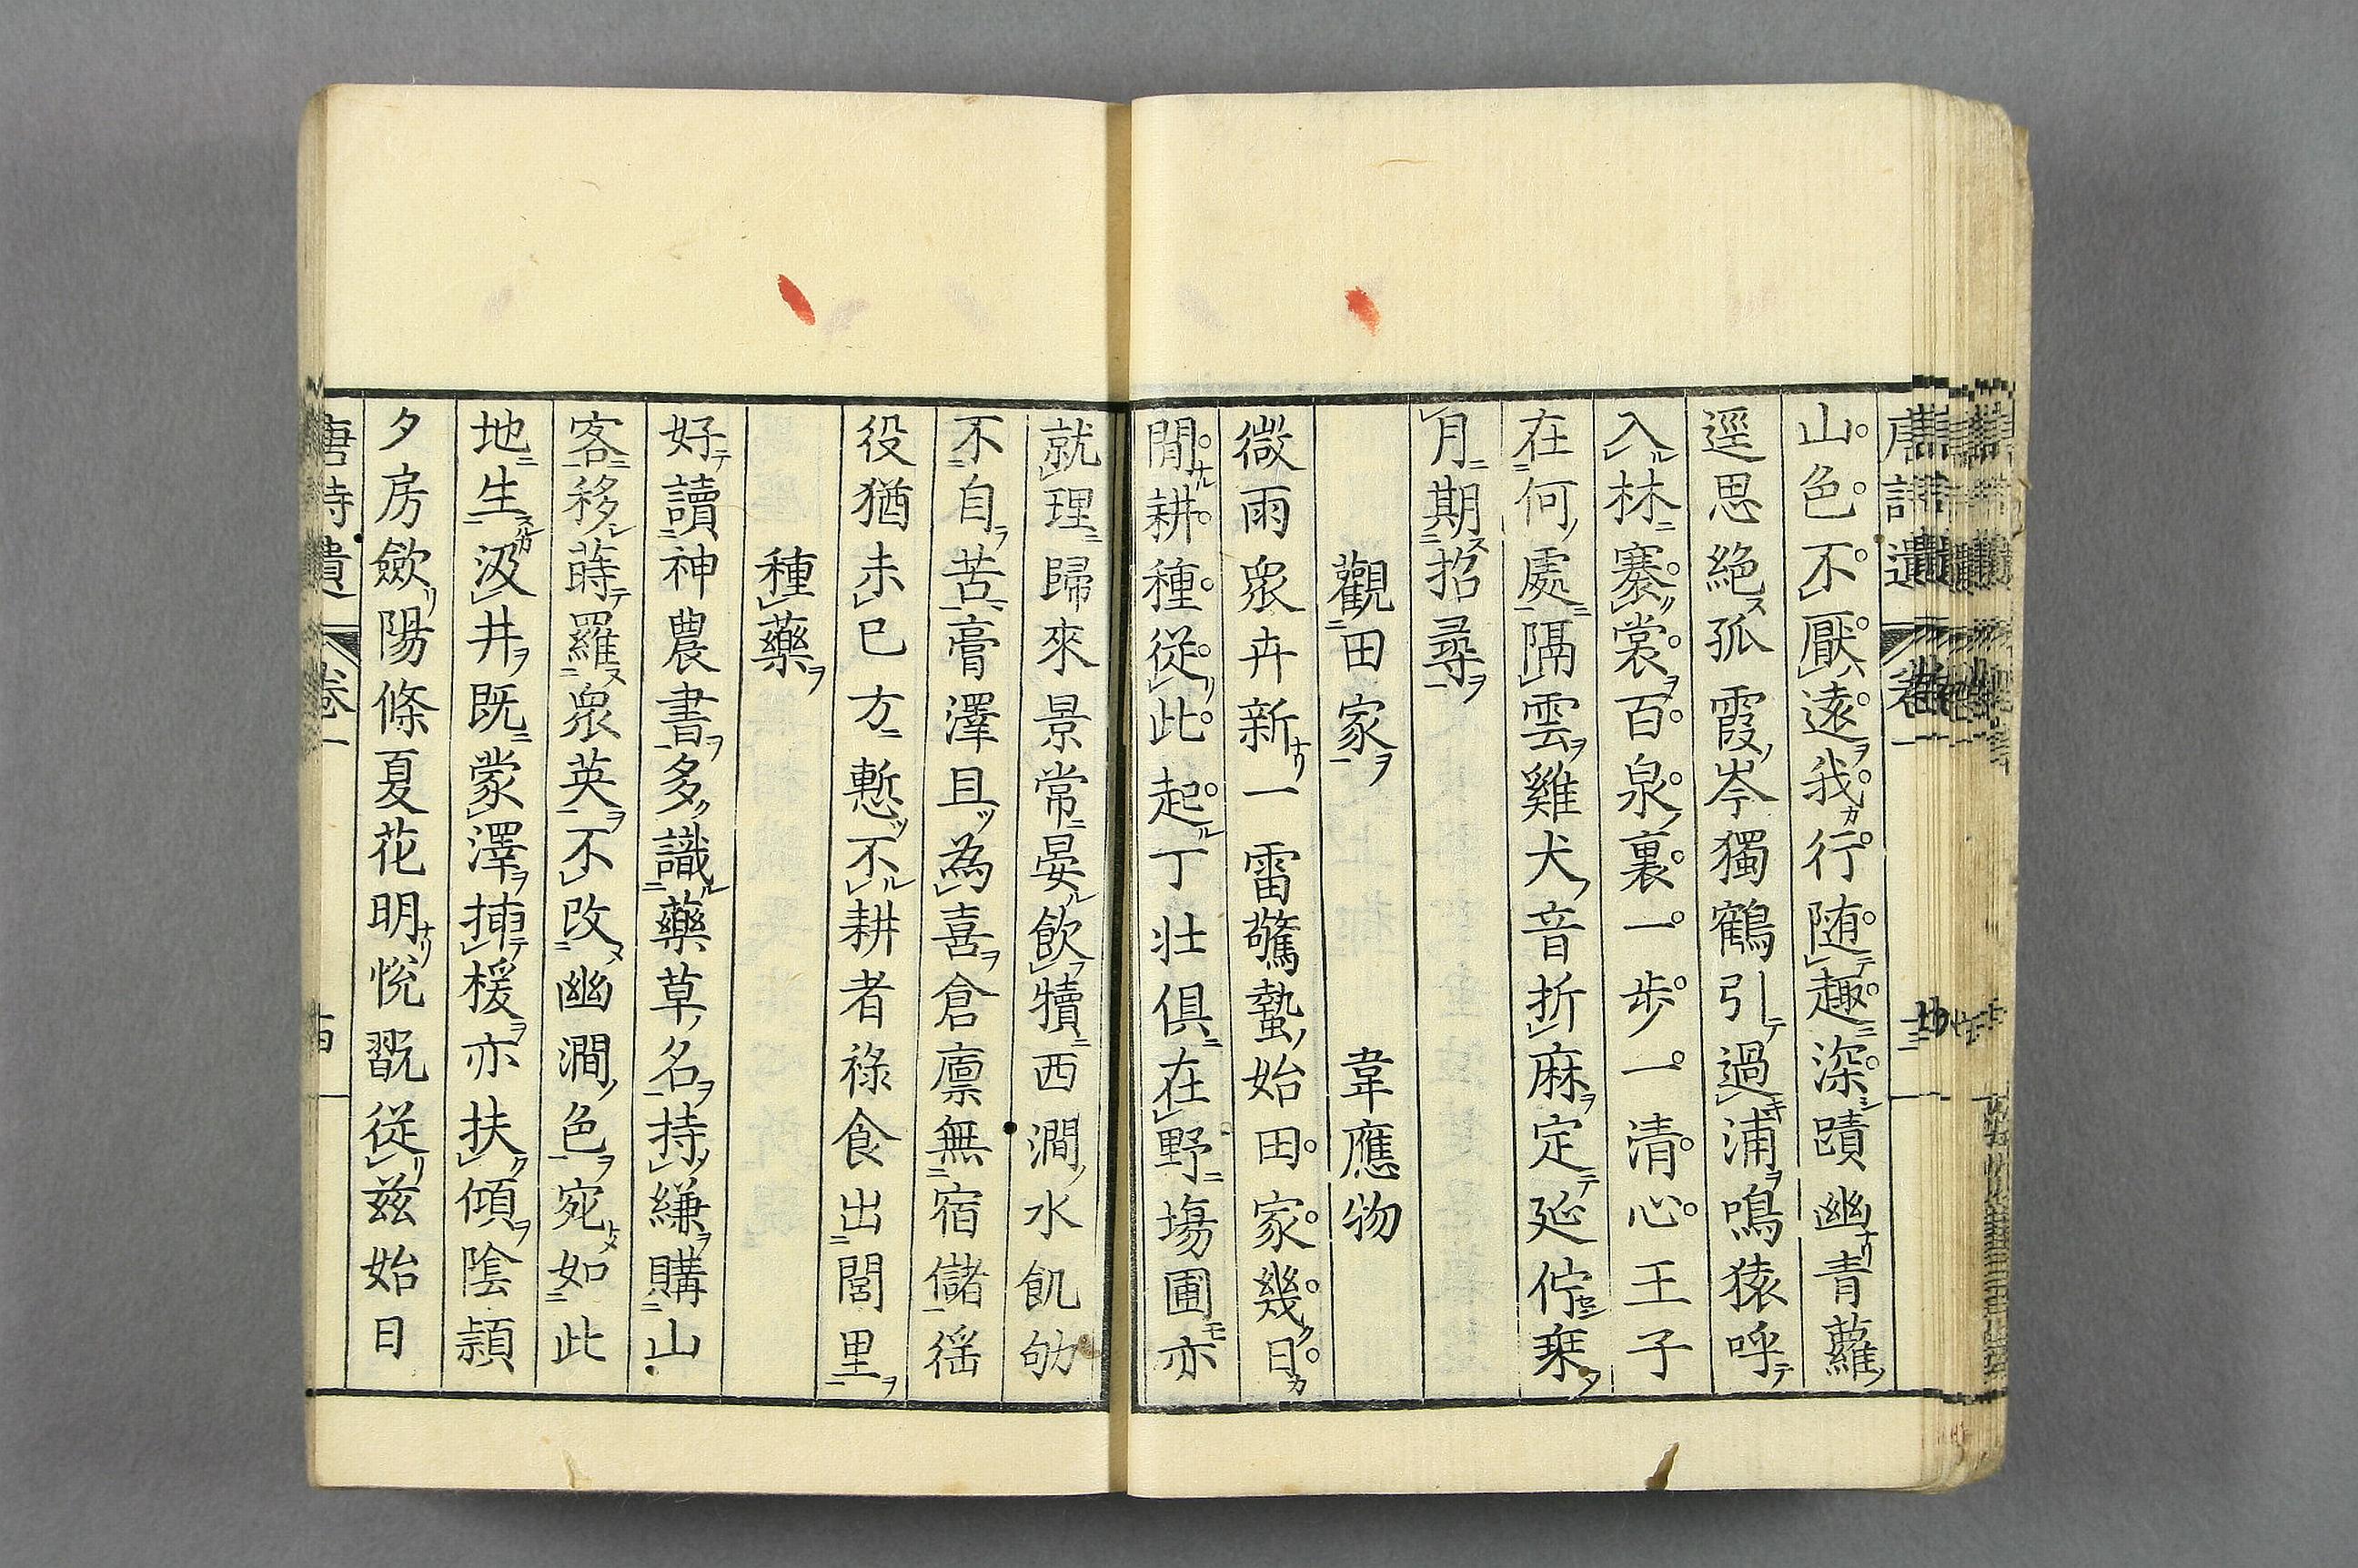 山色不厭遠我行随趣深蹟幽青蘿
逕思絶孤霞岑獨鶴引過浦鳴猿呼
入林褰裳百泉裏一歩一清心王子
在何處隔雲雞犬音折麻定延佇乗
月期招尋
觀田家 韋應物
微雨衆卉新一雷驚蟄始田家幾日
閒耕種從此起丁壮俱在野場圃亦
就理歸來景常晏飲犢西澗水飢劬
不自苦膏澤且為喜倉廪無宿儲徭
役猶未已方慙不耕者祿食出閭里
種藥
好讀神農書多識藥草名持縑購山
客移蒔羅衆英不改幽澗色宛如此
地生汲井既蒙澤插楥亦扶傾陰頴
夕房斂陽條夏花明悅翫從茲始日
唐詩遺 卷一